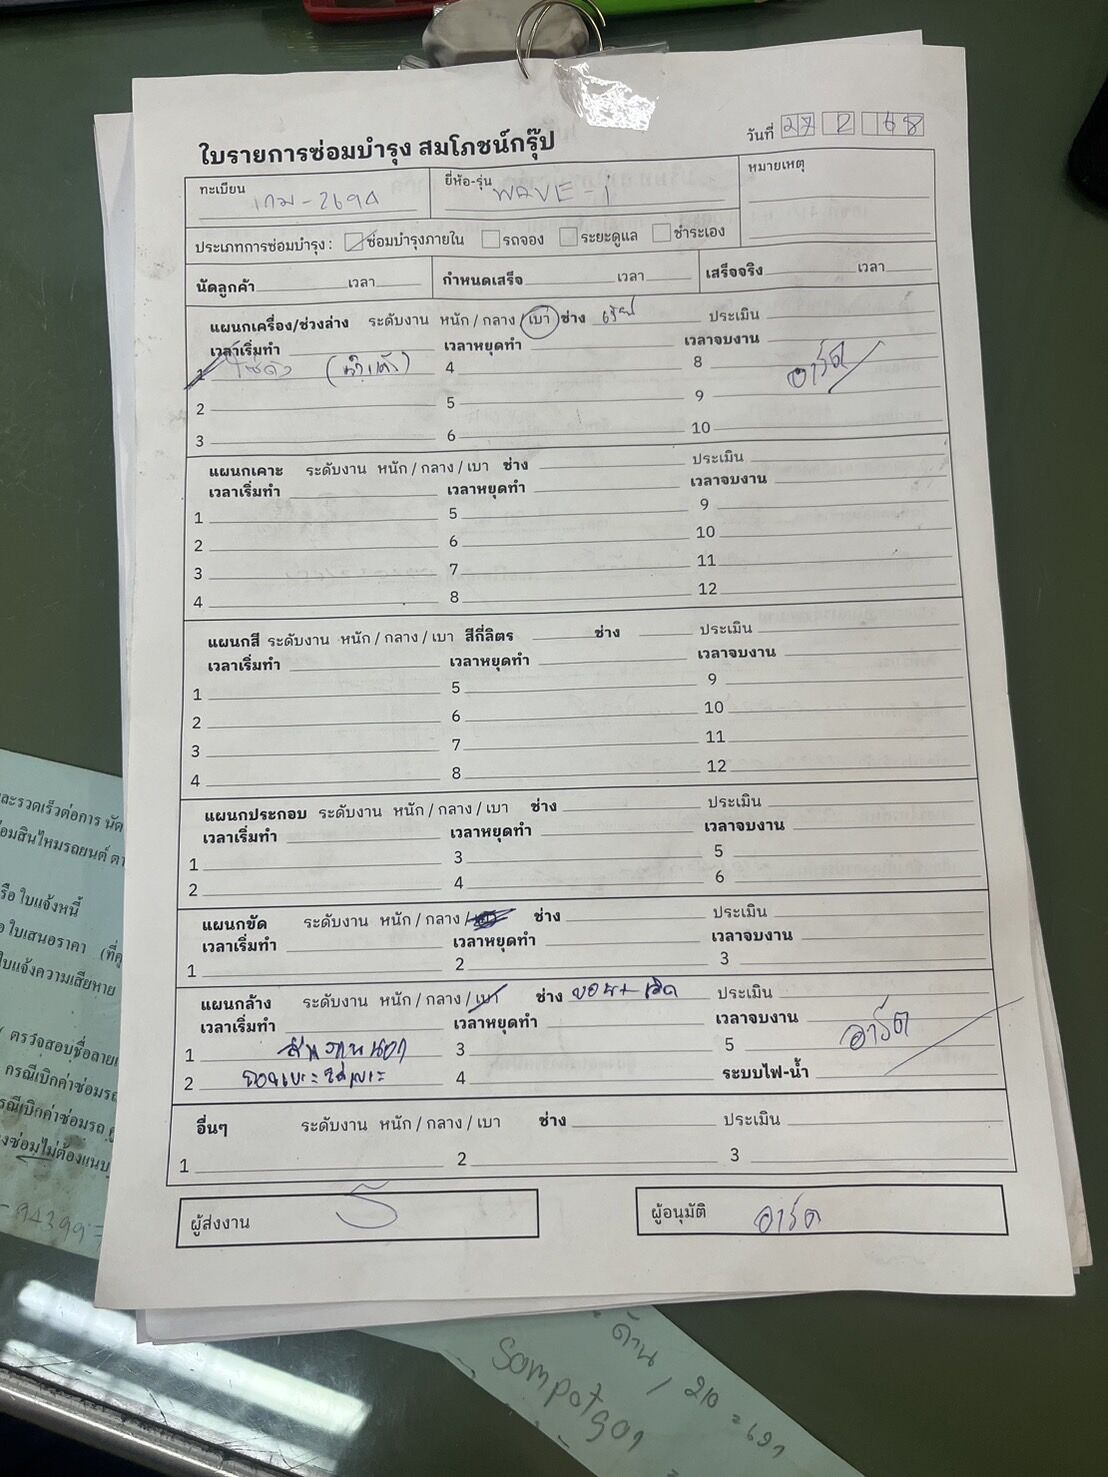 ใบรายการซ่อมบำรุง สมโภชน์กรุ๊ป
วันที่ 27 2 68
ทะเบียน เกม-2694 ยี่ห้อ-รุ่น WAVE-1 หมายเหตุ
ประเภทการซ่อมบำรุง : ซ่อมบำรุงภายใน รถจอง ระยะดูแล ชำระเอง
นัดลูกค้า เวลา กำหนดเสร็จ เวลา เสร็จจริง เวลา
แผนกเครื่อง/ช่วงล่าง ระดับงาน หนัก / กลาง / เบา ช่าง ประเมิน
เวลาเริ่มทำ เวลาหยุดทำ เวลาจบงาน
1 4 8 อาร์ต
2 5 9
3 6 10
แผนกเคาะ ระดับงาน หนัก / กลาง / เบา ช่าง ประเมิน
เวลาเริ่มทำ เวลาหยุดทำ เวลาจบงาน
1 5 9
2 6 10
3 7 11
4 8 12
แผนกสี ระดับงาน หนัก / กลาง / เบา สีกี่ลิตร ช่าง ประเมิน
เวลาเริ่มทำ เวลาหยุดทำ เวลาจบงาน
1 5 9
2 6 10
3 7 11
4 8 12
แผนกประกอบ ระดับงาน หนัก / กลาง / เบา ช่าง ประเมิน
เวลาเริ่มทำ เวลาหยุดทำ เวลาจบงาน
1 3 5
2 4 6
แผนกขัด ระดับงาน หนัก / กลาง / ช่าง ประเมิน
เวลาเริ่มทำ เวลาหยุดทำ เวลาจบงาน
1 2 3
แผนกล้าง ระดับงาน หนัก / กลาง / เบา ช่าง ประเมิน
เวลาเริ่มทำ เวลาหยุดทำ เวลาจบงาน
1 3 5 อาร์ต
2 ถอดเบาะ ใส่เบาะ 4 ระบบไฟ-น้ำ
อื่นๆ ระดับงาน หนัก / กลาง / เบา ช่าง ประเมิน
1 2 3
ผู้ส่งงาน ผู้อนุมัติ อาร์ต
และรวดเร็วต่อการ นัด
อมสินไหมรถยนต์ ตา
รือ ใบแจ้งหนี้
ใบเสนอราคา (ที่คู
ใบแจ้งความเสียหาย
ตรวจสอบชื่อลาย
กรณีเบิกค่าซ่อมรถ
กรณีเบิกค่าซ่อมรถ
งซ่อมไม่ต้องแนบ
ด้าน / 210
Sompotgar